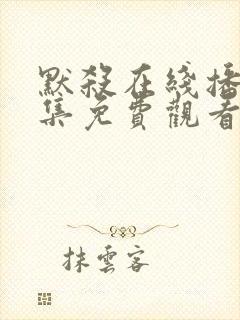 默殺在綫播
集免費觀看
抹雲客